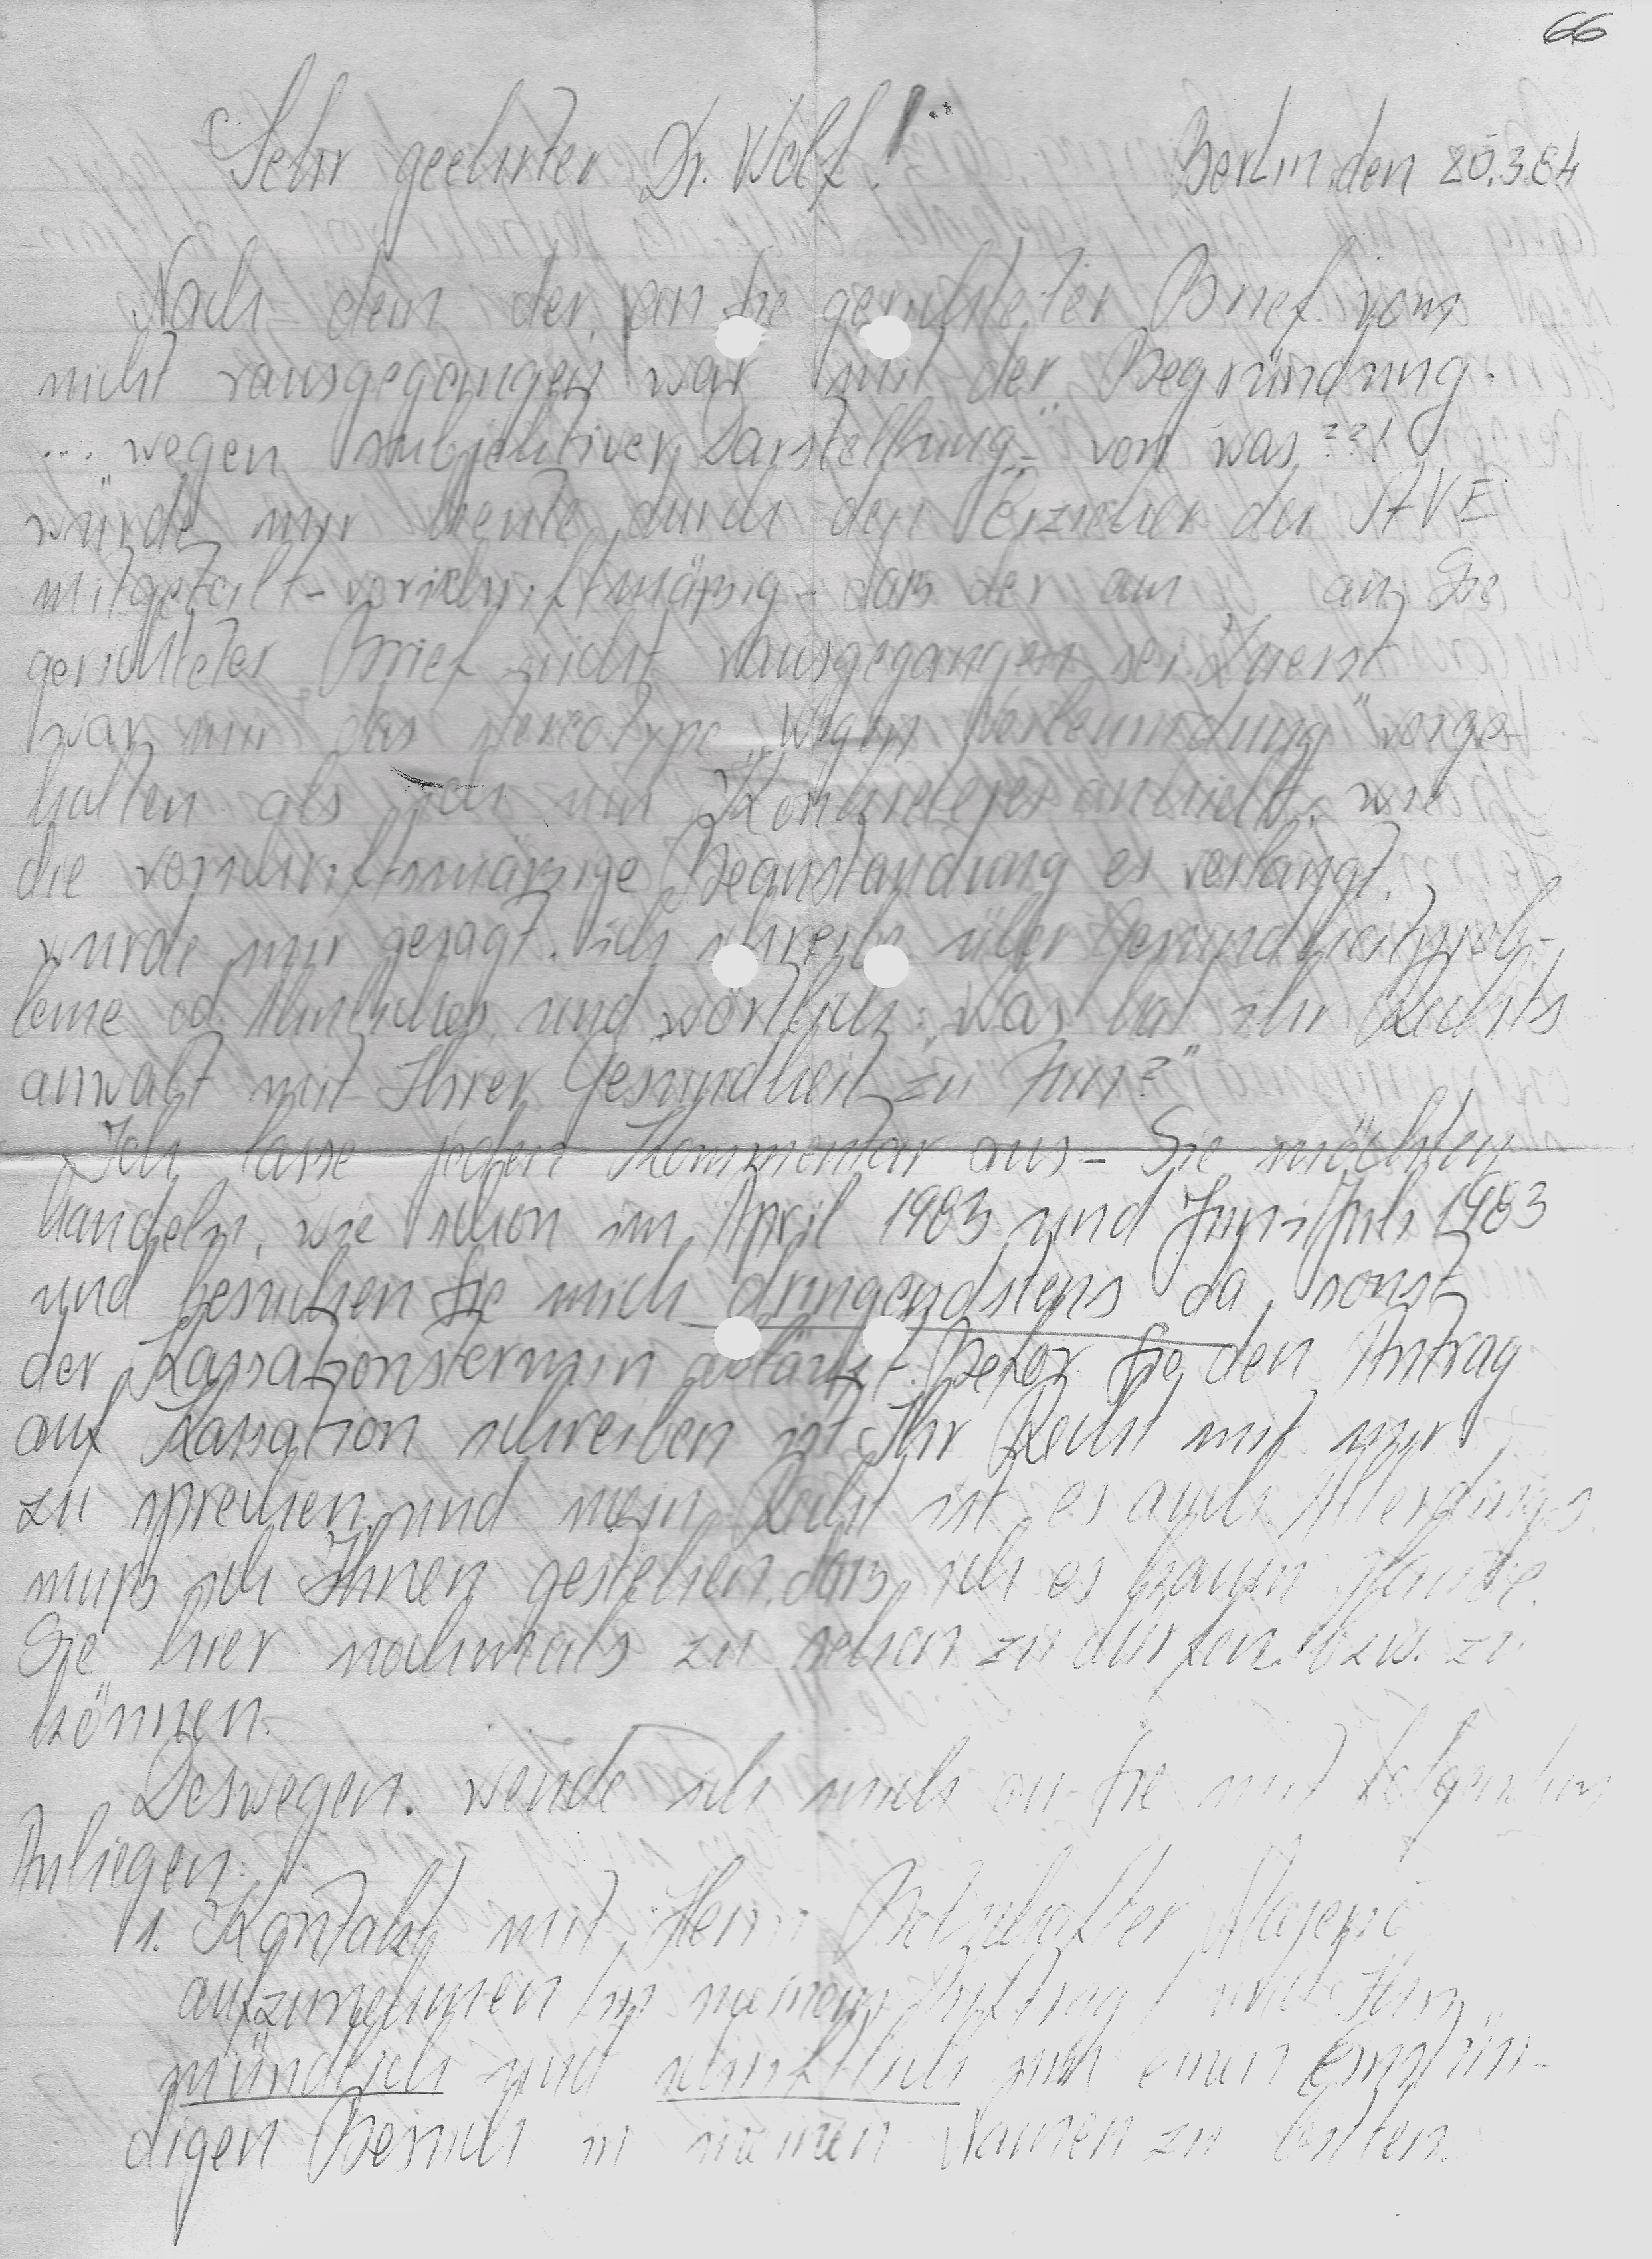 66
Sehr geehrter Dr. Wolf! Berlin, den 20.3.84
Nach dem der, an Sie gerichteter Brief vom
nicht rausgegangen war mit der Begründung:
... „wegen subjektiver Darstellung" - von was??!
würde mir heute durch den Erzieher der StVE
mitgeteilt - vorschriftmäßig - dass der am an Sie
gerichteter Brief nicht rausgegangen sei. Zuerst
war mir das stereotype „Wegen Verleumdung" vorge-
halten als ich um Konkreteres anhielt, wie
die vorschriftsmässige Beanstandung es verlangt,
wurde mir gesagt. ich schreibe über Gesundheitsprob-
leme od. Ähnliches, und wörtlich: „was hat ihr Rechts
anwalt mit Ihrer Gesundheit zu tun?"
Ich lasse jeden Kommentar aus - Sie möchten
handeln, wie schon im April 1983 und Juni/Juli 1983
und besuchen Sie mich dringendstens da sonst
der Kassationstermin abläuft. Bevor Sie den Antrag
auf Kassation schreiben ist Ihr Recht mit mir
zu sprechen und mein Recht ist es auch. Allerdings
muß ich Ihnen gestehen, dass ich es kaum glaube,
Sie hier nochmals zu sehen zu dürfen. bzw. zu
können.
Deswegen. wende ich mich an Sie mit folgenden
Anliegen:
1. Kontakt mit Herrn Botschafter
aufzunehmen /in meinem Auftrag/ und Ihn
mündlich und schriftlich um einen einstün-
digen Besuch in meinen Namen zu bitten.